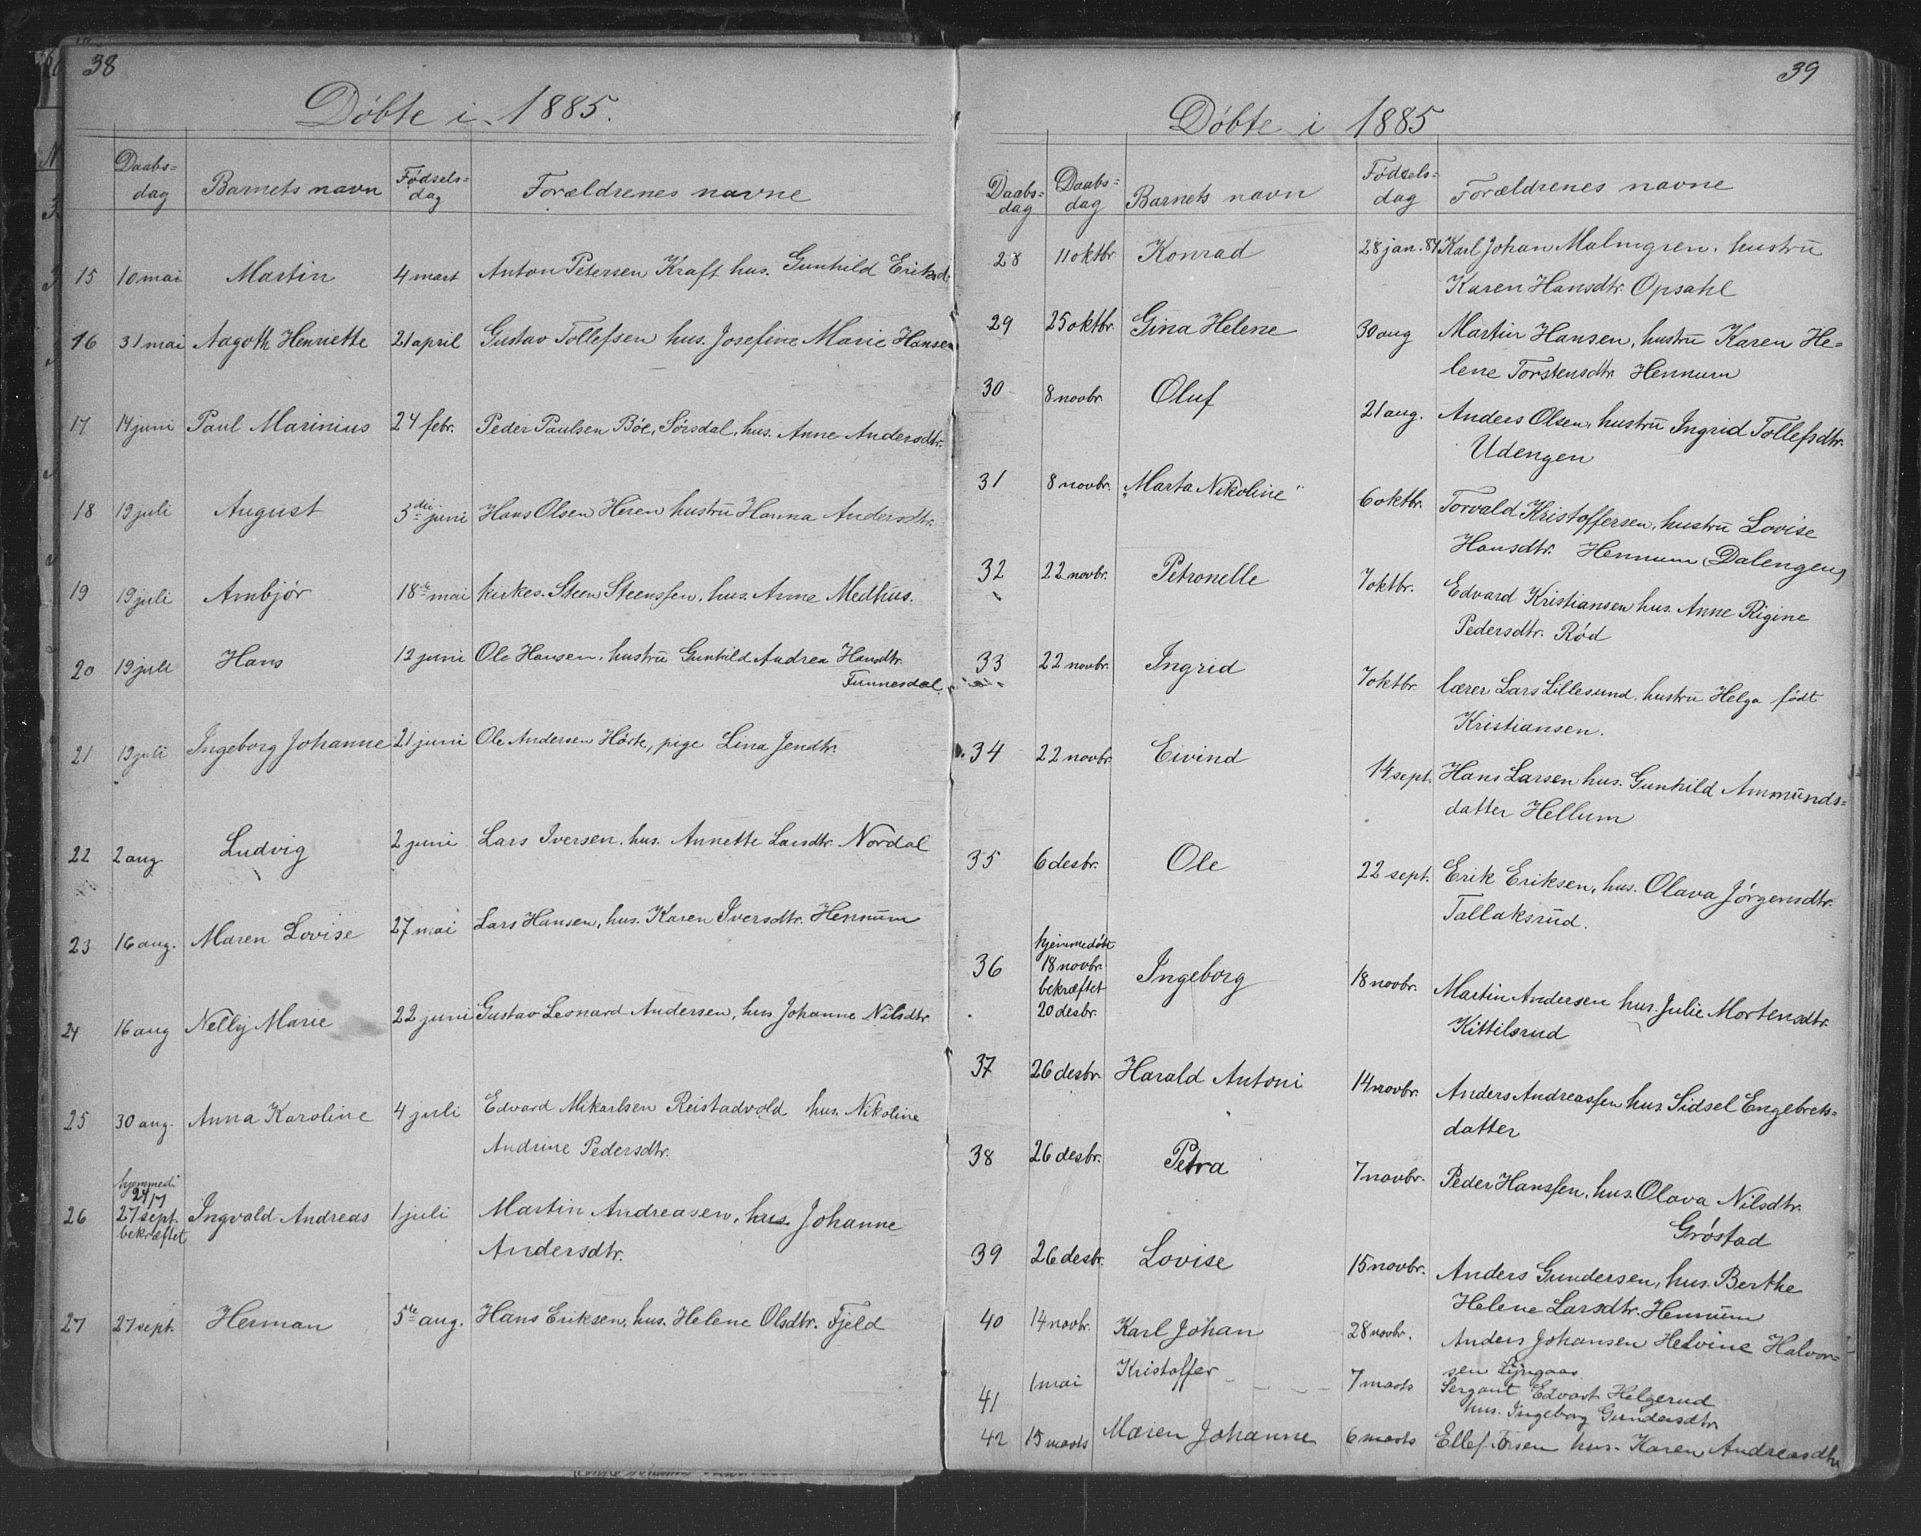 38
Døbte i 1885.
Daabs=
dag
Barnets navn
Fødsels=
dag
Forældrenes navne
15 10 mai Martin 4 mart Anton Petersen Kraft hus. Gunhild Eriksd.
16 31 mai Aagoth Henriette 21 april Gustav Tollefsen hus. Josefine Marie Hansen
17 14 juni Paul Marinius 24 febr. Peder Paulsen Böe, Sørsdal, hus. Anne Andersdtr.
18 19 juli August 3die juni Hans Olsen Heren hustru Hanna Andersdtr.
19 19 juli Ambjør 18de mai kirkes. Steen Steenssen, hus. Anne Medhus.
20 19 juli Hans 12 juni Ole Hansen, hustru Gunhild Andrea Hansdtr.
Tunnesdal
21 19 juli Ingeborg Johanne 21 juni Ole Andersen Hörte, pige Lina Jensdtr.
22 2 aug. Ludvig 2 juni Lars Iversen, hus. Annette Larsdtr. Nordal
23 16 aug. Maren Lovise 27 mai Lars Hansen, hus. Karen Iversdtr. Hennum
24 16 aug Nelly Marie 22 juni Gustav Leonard Andersen, hus. Johanne Nilsdtr.
25 30 aug. Anna Karoline 4 juli Edvard Mikarlsen Reistadvold hus. Nikoline
Andrine Pedersdtr.
hjemmed.
24/7
26 27 sept. Ingvald Andreas 1 juli Martin Andreasen, hus. Johanne
bekræftet
Andersdtr.
27 27 sept. Herman 5te aug. Hans Eriksen, hus. Helene Olsdtr. Fjeld
39
Døbte i 1885
Daabs=
dag
Daabs=
dag
Barnets navn
Fødsels=
dag
Forældrenes navne
28 11 oktbr. Konrad 28 jan. 84 Karl Johan Malmgren. hustru
Karen Hansdtr. Opsahl
29 25 oktbr. Gina Helene 30 aug Martin Hansen, hustru Karen He=
lene Torstensdtr. Hennum
30 8 novbr. Oluf 21 aug. Anders Olsen, hustru Ingrid Tollefsdtr.
Udengen
31 8 novbr. "Marta Nikoline" 6 oktbr. Torvald Kristoffersen, hustru Lovise
Hansdtr. Hennum (Dalengen)
32 22 novbr. Petronelle 7 oktbr. Edvard Kristiansen hus. Anne Rigine
Pedersdtr. Rød
33 22 novbr. Ingrid 7 oktbr. lærer Lars Lillesund. hustru Helga født
Kristiansen.
34 22 novbr. Eivind 14 sept. Hans Larsen hus. Gunhild Ammunds=
datter Hellum
35 6 desbr. Ole 22 sept. Erik Eriksen, hus. Olava Jörgensdtr.
Tallaksrud.
hjemmedøbt
36 18 novbr. Ingeborg 18 novbr. Martin Andersen hus. Julie Mortensdtr.
bekræftet
20 desbr.
Kittilsrud
37 26 desbr. Harald Antoni 14 novbr. Anders Andreassen hus. Sidsel Engebrets=
datter
38 26 desbr. Petra 7 novbr. Peder Hanssen, hus. Olava Nilsdtr.
Grøstad
39 26 desbr. Lovise 15 novbr. Anders Gundersen, hus. Berthe
Helene Larsdtr. Hennum
40 14 novbr. Karl Johan 28 novbr. Anders Johansen Helvine Halvor=
sen Lyngaas
41 1 mai Kristoffer 7 marts Sergant Edvart Helgerud
hus. Ingeborg Gundersdtr
42 15 marts Maren Johanne 6 marts Ellef Torsen hus. Karen Andreasdtr